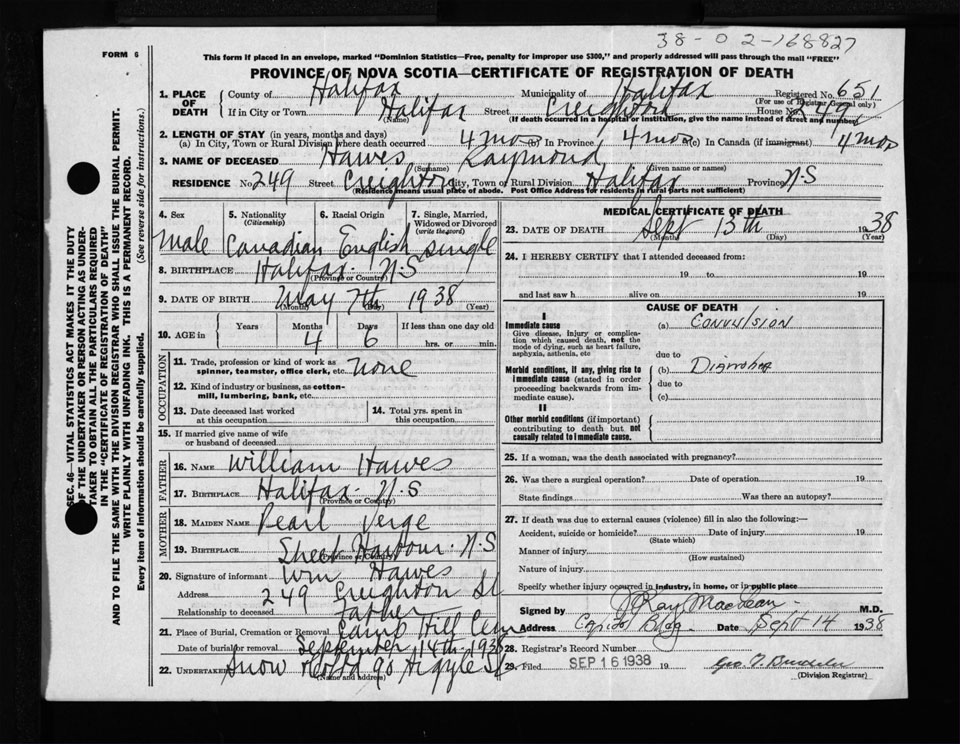 38-02-168827
FORM 6
This form if placed in an envelope, marked "Dominion Statistics—Free, penalty for improper use $300," and properly addressed will pass through the mail "FREE"
PROVINCE OF NOVA SCOTIA—CERTIFICATE OF REGISTRATION OF DEATH
1. PLACE OF DEATH
County of Halifax Municipality of Halifax Registered No. 651
(For use of Registrar General only)
If in City or Town Halifax Street Creighton House No. 249
(Name) (If death occurred in a hospital or institution, give the name instead of street and number)
2. LENGTH OF STAY (in years, months and days)
(a) In City, Town or Rural Division where death occurred 4 mos (b) In Province 4 mos (c) In Canada (if immigrant) 4 mos
3. NAME OF DECEASED Hawes Raymond
(Surname) (Given name or names)
RESIDENCE No. 249 Street Creighton City, Town or Rural Division Halifax Province N-S
(Residence means usual place of abode. Post Office Address for residents in rural parts not sufficient)
4. Sex 5. Nationality (Citizenship) 6. Racial Origin 7. Single, Married, Widowed or Divorced (write the word)
Male Canadian English Single
8. BIRTHPLACE Halifax N-S
(Province or Country)
9. DATE OF BIRTH May 7th 1938
(Month) (Day) (Year)
10. AGE in Years Months Days If less than one day old
4 6 hrs. or min.
OCCUPATION
11. Trade, profession or kind of work as spinner, teamster, office clerk, etc. None
12. Kind of industry or business, as cotton-mill, lumbering, bank, etc.
13. Date deceased last worked at this occupation 14. Total yrs. spent in this occupation
15. If married give name of wife or husband of deceased
FATHER
16. NAME William Hawes
17. BIRTHPLACE Halifax N-S
(Province or Country)
MOTHER
18. MAIDEN NAME Pearl Verge
19. BIRTHPLACE Sheet Harbour N-S
(Province or Country)
20. Signature of informant Wm Hawes
Address 249 Creighton St
Relationship to deceased Father
21. Place of Burial, Cremation or Removal Camp Hill Cem
Date of burial or removal September 14th-1938
22. UNDERTAKER Snow & Co Ltd 90 Argyle St
(Name and address)
MEDICAL CERTIFICATE OF DEATH
23. DATE OF DEATH Sept 13th 1938
(Month) (Day) (Year)
24. I HEREBY CERTIFY that I attended deceased from:
19 to 19
and last saw h alive on 19
CAUSE OF DEATH
I
Immediate cause
Give disease, injury or complication which caused death, not the mode of dying, such as heart failure, asphyxia, asthenia, etc
(a) Convulsion
due to
Morbid conditions, if any, giving rise to immediate cause (stated in order proceeding backwards from immediate cause).
(b) Diarrhoea
due to
(c)
II
Other morbid conditions (if important) contributing to death but not causally related to immediate cause.
25. If a woman, was the death associated with pregnancy?
26. Was there a surgical operation? Date of operation 19
State findings Was there an autopsy?
27. If death was due to external causes (violence) fill in also the following:—
Accident, suicide or homicide? Date of injury 19
(State which)
Manner of injury
(How sustained)
Nature of injury
Specify whether injury occurred in industry, in home, or in public place
Signed by J Ray MacLean M.D.
Address Capitol Bldg. Date Sept 14 1938
28. Registrar's Record Number
29. Filed SEP 16 1938 19
(Division Registrar)
SEC. 46—VITAL STATISTICS ACT MAKES IT THE DUTY
OF THE UNDERTAKER OR PERSON ACTING AS UNDER-
TAKER TO OBTAIN ALL THE PARTICULARS REQUIRED
IN THE "CERTIFICATE OF REGISTRATION OF DEATH"
AND TO FILE THE SAME WITH THE DIVISION REGISTRAR WHO SHALL ISSUE THE BURIAL PERMIT.
WRITE PLAINLY WITH UNFADING INK. THIS IS A PERMANENT RECORD.
Every item of information should be carefully supplied. (See reverse side for instructions.)